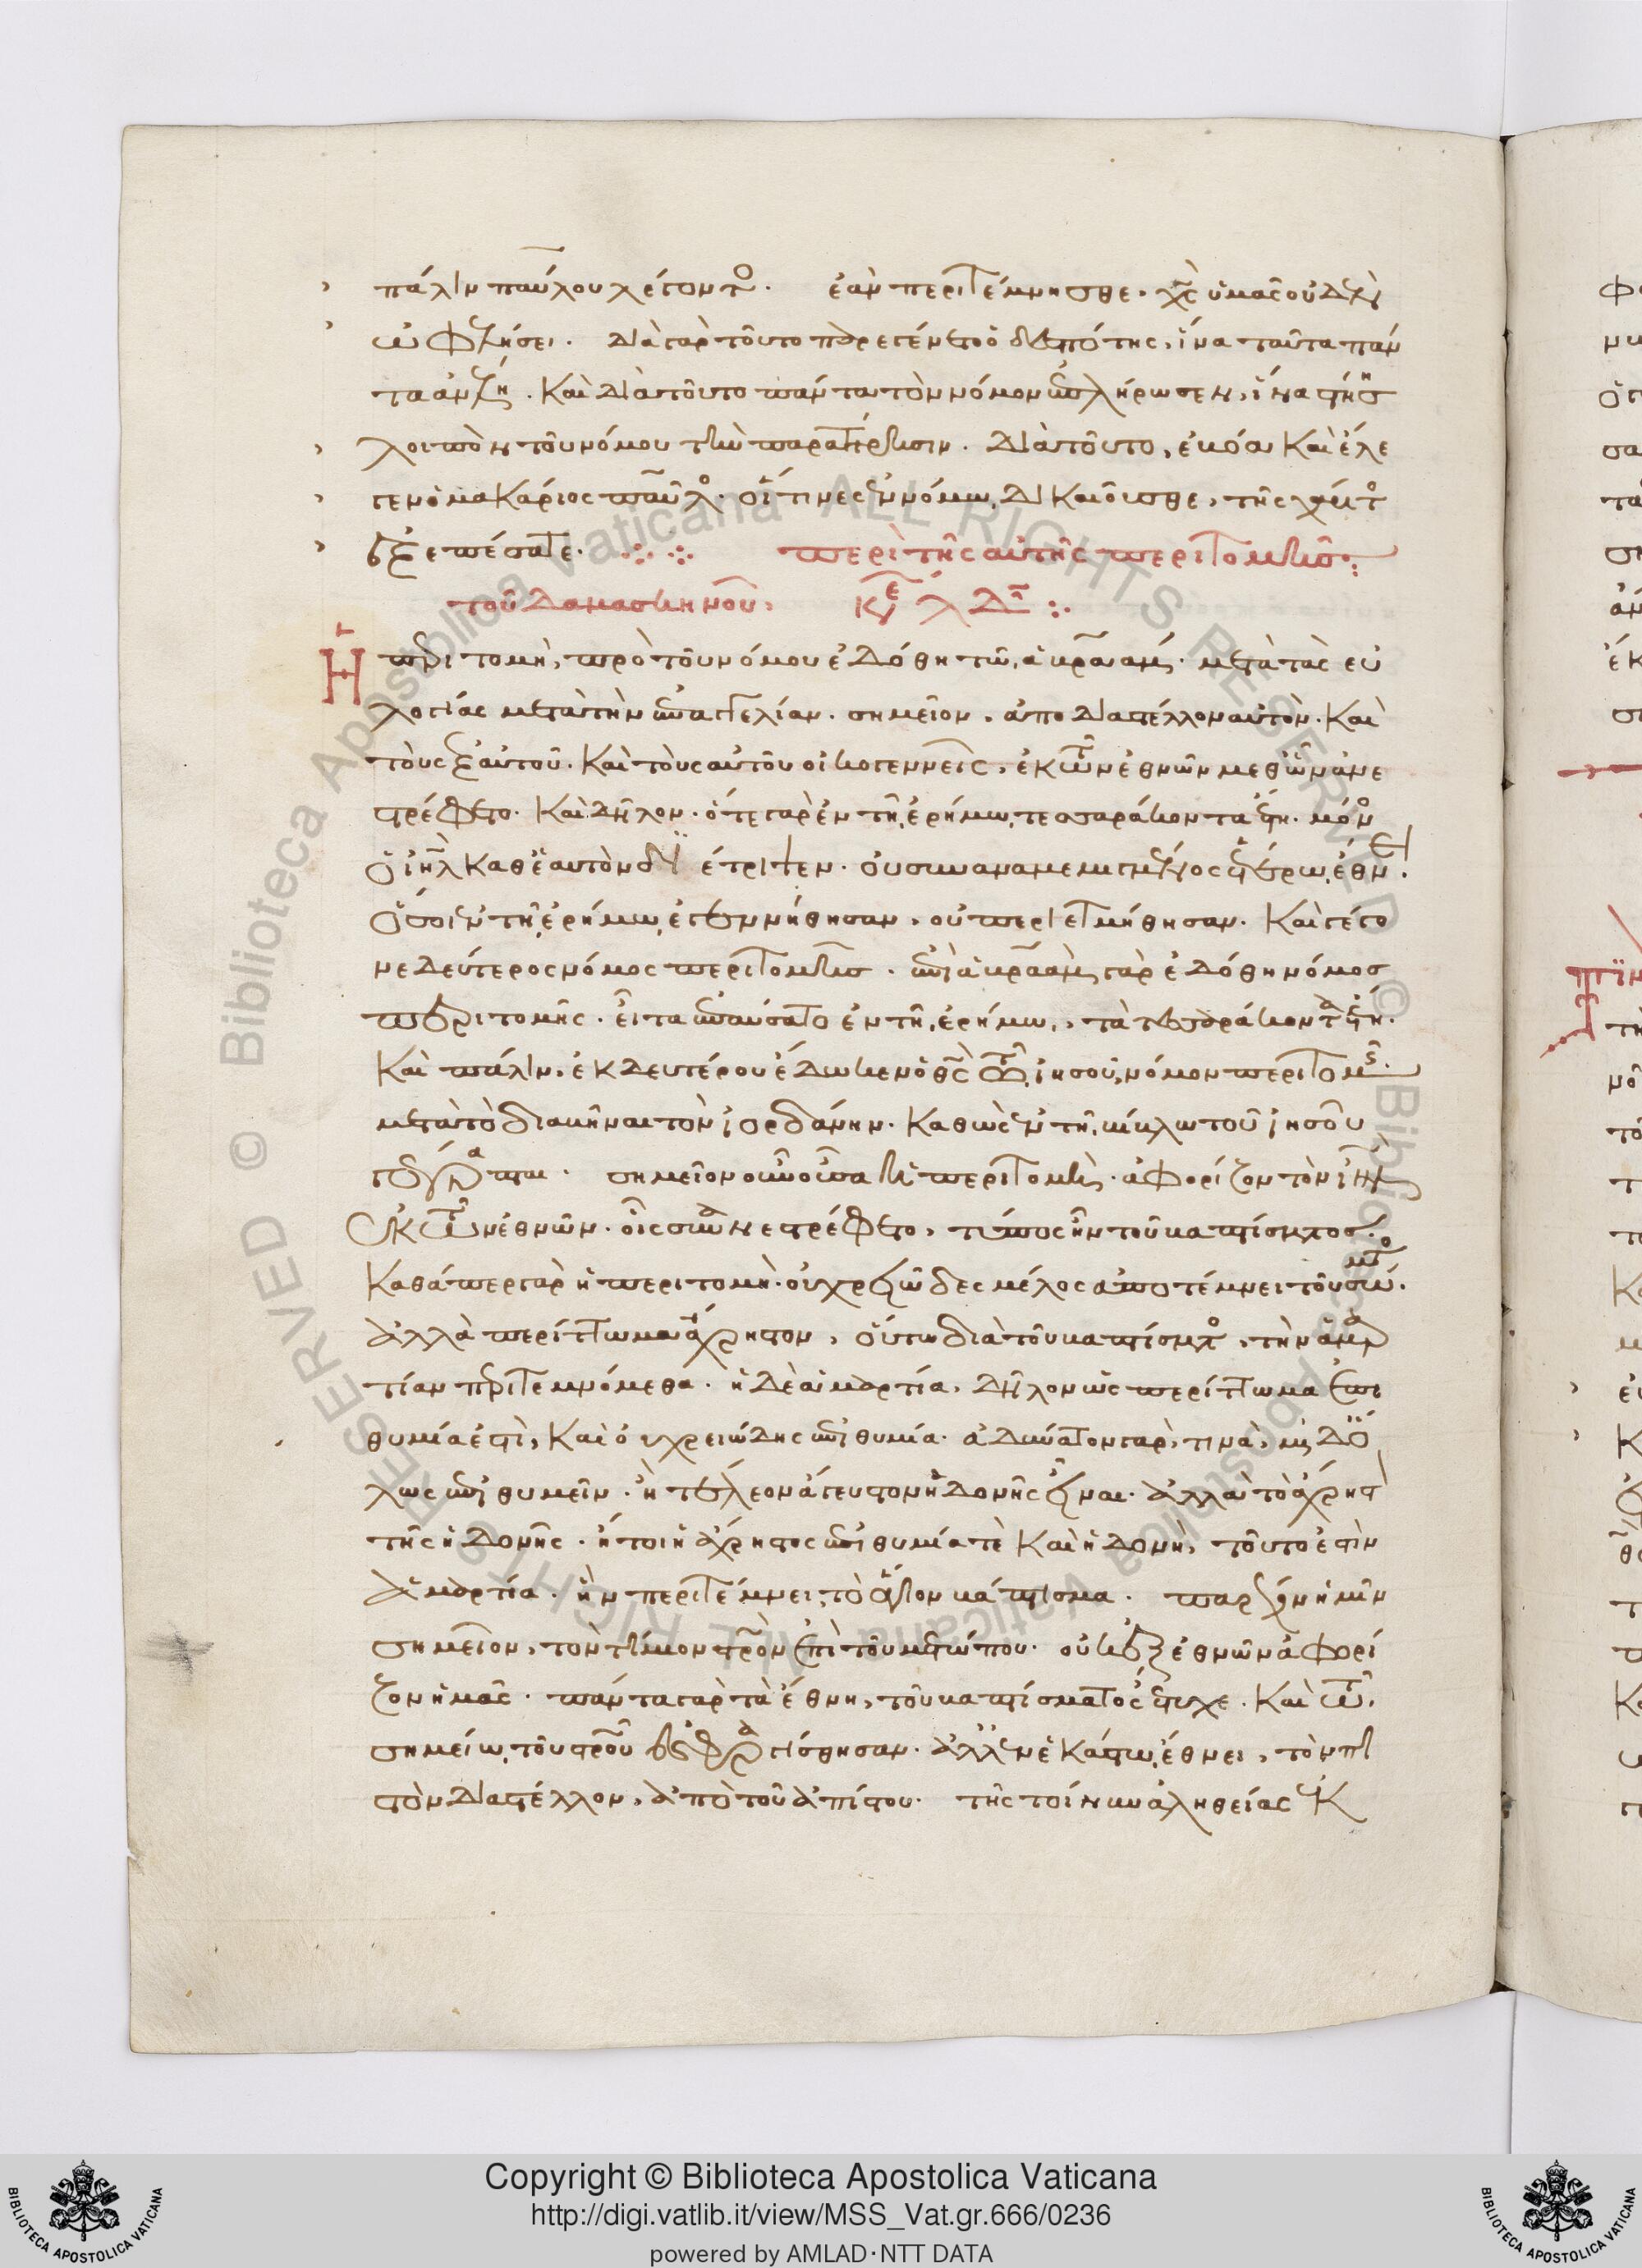 πάλιν παύλου λέγοντος. ἐὰν περιτέμνησθε, χς ὑμᾶς οὐδὲν
ὠφελήσει. διὰ γὰρ τοῦτο παρεγένετο ὁ δεσπότης, ἵνα ταῦτα πάν
τα ἀνέλῃ. Καὶ διὰ τοῦτο πάντα τὸν νόμον ἐπλήρωσεν, ἵνα στήσῃ
λοιπὸν τοῦ νόμου τὴν παρατήρησιν. διὰ τοῦτο, ἐβόα Καὶ ἔλε
γεν ὁ μακάριος παῦλος. οἵτινες ἐν νόμω δικαιοῦσθε, τῆς χάριτος
ἐξεπέσατε.
περὶ τῆς αὐτῆς περιτομῆς
τοῦ δαμασκηνοῦ, κε λδ
Ἡ περιτομὴ, πρὸ τοῦ νόμου ἐδόθη τῶ ἀβραάμ. μετὰ τὰς εὐ
λογίας μετὰ τὴν ἐπαγγελίαν. σημεῖον, ἀποδιαστέλλον αὐτὸν. Καὶ
τοὺς ἐξ αὐτοῦ. Καὶ τοὺς αὐτοῦ οἰκογεννεῖς, ἐκ τῶν ἐθνῶν μεθ' ὧν ἀνε
στρέφετο. Καὶ δῆλον. ὅτε γὰρ ἐν τῆ ἐρήμω τεσσαράκοντα ἔτη. μόνος
ὁ ἰηλ καθ' ἑαυτὸν διέτριψεν. οὐ συναναμεμιγμένος ἑτέρω ἔθνει.
ὅσοι ἐν τῆ ἐρήμω ἐγεννήθησαν, οὐ περιετμήθησαν. Καὶ γέγο
νε δεύτερος νόμος περιτομῆς. ἐπὶ ἀβραὰμ γὰρ ἐδόθη νόμος
περιτομῆς. εἶτα ἐπαύσατο ἐν τῆ ἐρήμω, τὰ τεσσαράκοντα ἔτη.
Καὶ πάλιν, ἐκ δευτέρου ἔδωκεν ὁ θς τῶ ἰησοῦ, νόμον περιτομῆς.
μετὰ τὸ διαβῆναι τὸν ἰορδάνην. Καθὼς ἐν τῆ βίβλω τοῦ ἰησοῦ
γέγραπται. σημεῖον οὖν οὖσα ἡ περιτομὴ. ἀφορίζον τὸν ἰηλ
ἐκ τῶν ἐθνῶν. οἷς συνανεστρέφετο, τύπος ἦν τοῦ βαπτίσματος.
Καθάπερ γὰρ ἡ περιτομὴ. οὐ χρειῶδες μέλος ἀποτέμνει τοῦ σώματος.
ἀλλὰ περίττωμα ἄχρηστον, οὕτω διὰ τοῦ βαπτίσματος, τὴν ἁμαρ
τίαν περιτεμνόμεθα. ἡ δὲ ἁμαρτία, δῆλον ὡς περίττωμα ἐπι
θυμία ἐστὶ, Καὶ οὐ χρειώδης ἐπιθυμία. ἀδύνατον γὰρ, τινὰ, μηδό
λως ἐπιθυμεῖν. ἢ τέλεον ἄγευστον ἡδονῆς εἶναι. ἀλλὰ τὸ ἄχρηστον
τῆς ἡδονῆς. ἤτοι ἡ ἄχρηστος ἐπιθυμία τὲ Καὶ ἡδονὴ, τοῦτο ἐστὶν
ἁμαρτία. ἣν περιτέμνει, τὸ ἅγιον βάπτισμα. παρέχον ἡμῖν
σημεῖον, τὸν τίμιον στρὸν ἐπὶ τοῦ μετώπου. οὐκ ἐξ ἐθνῶν ἀφορί
ζον ἡμᾶς. πάντα γὰρ τὰ ἔθνη, τοῦ βαπτίσματος ἔτυχε. Καὶ τῶ
σημείω τοῦ στροῦ ἐσφραγίσθησαν. ἀλλ' ἐν ἑκάστω ἔθνει, τὸν πι
στὸν διαστέλλον, ἀπὸ τοῦ ἀπίστου. τῆς τοίνυν ἀληθείας ἐκ